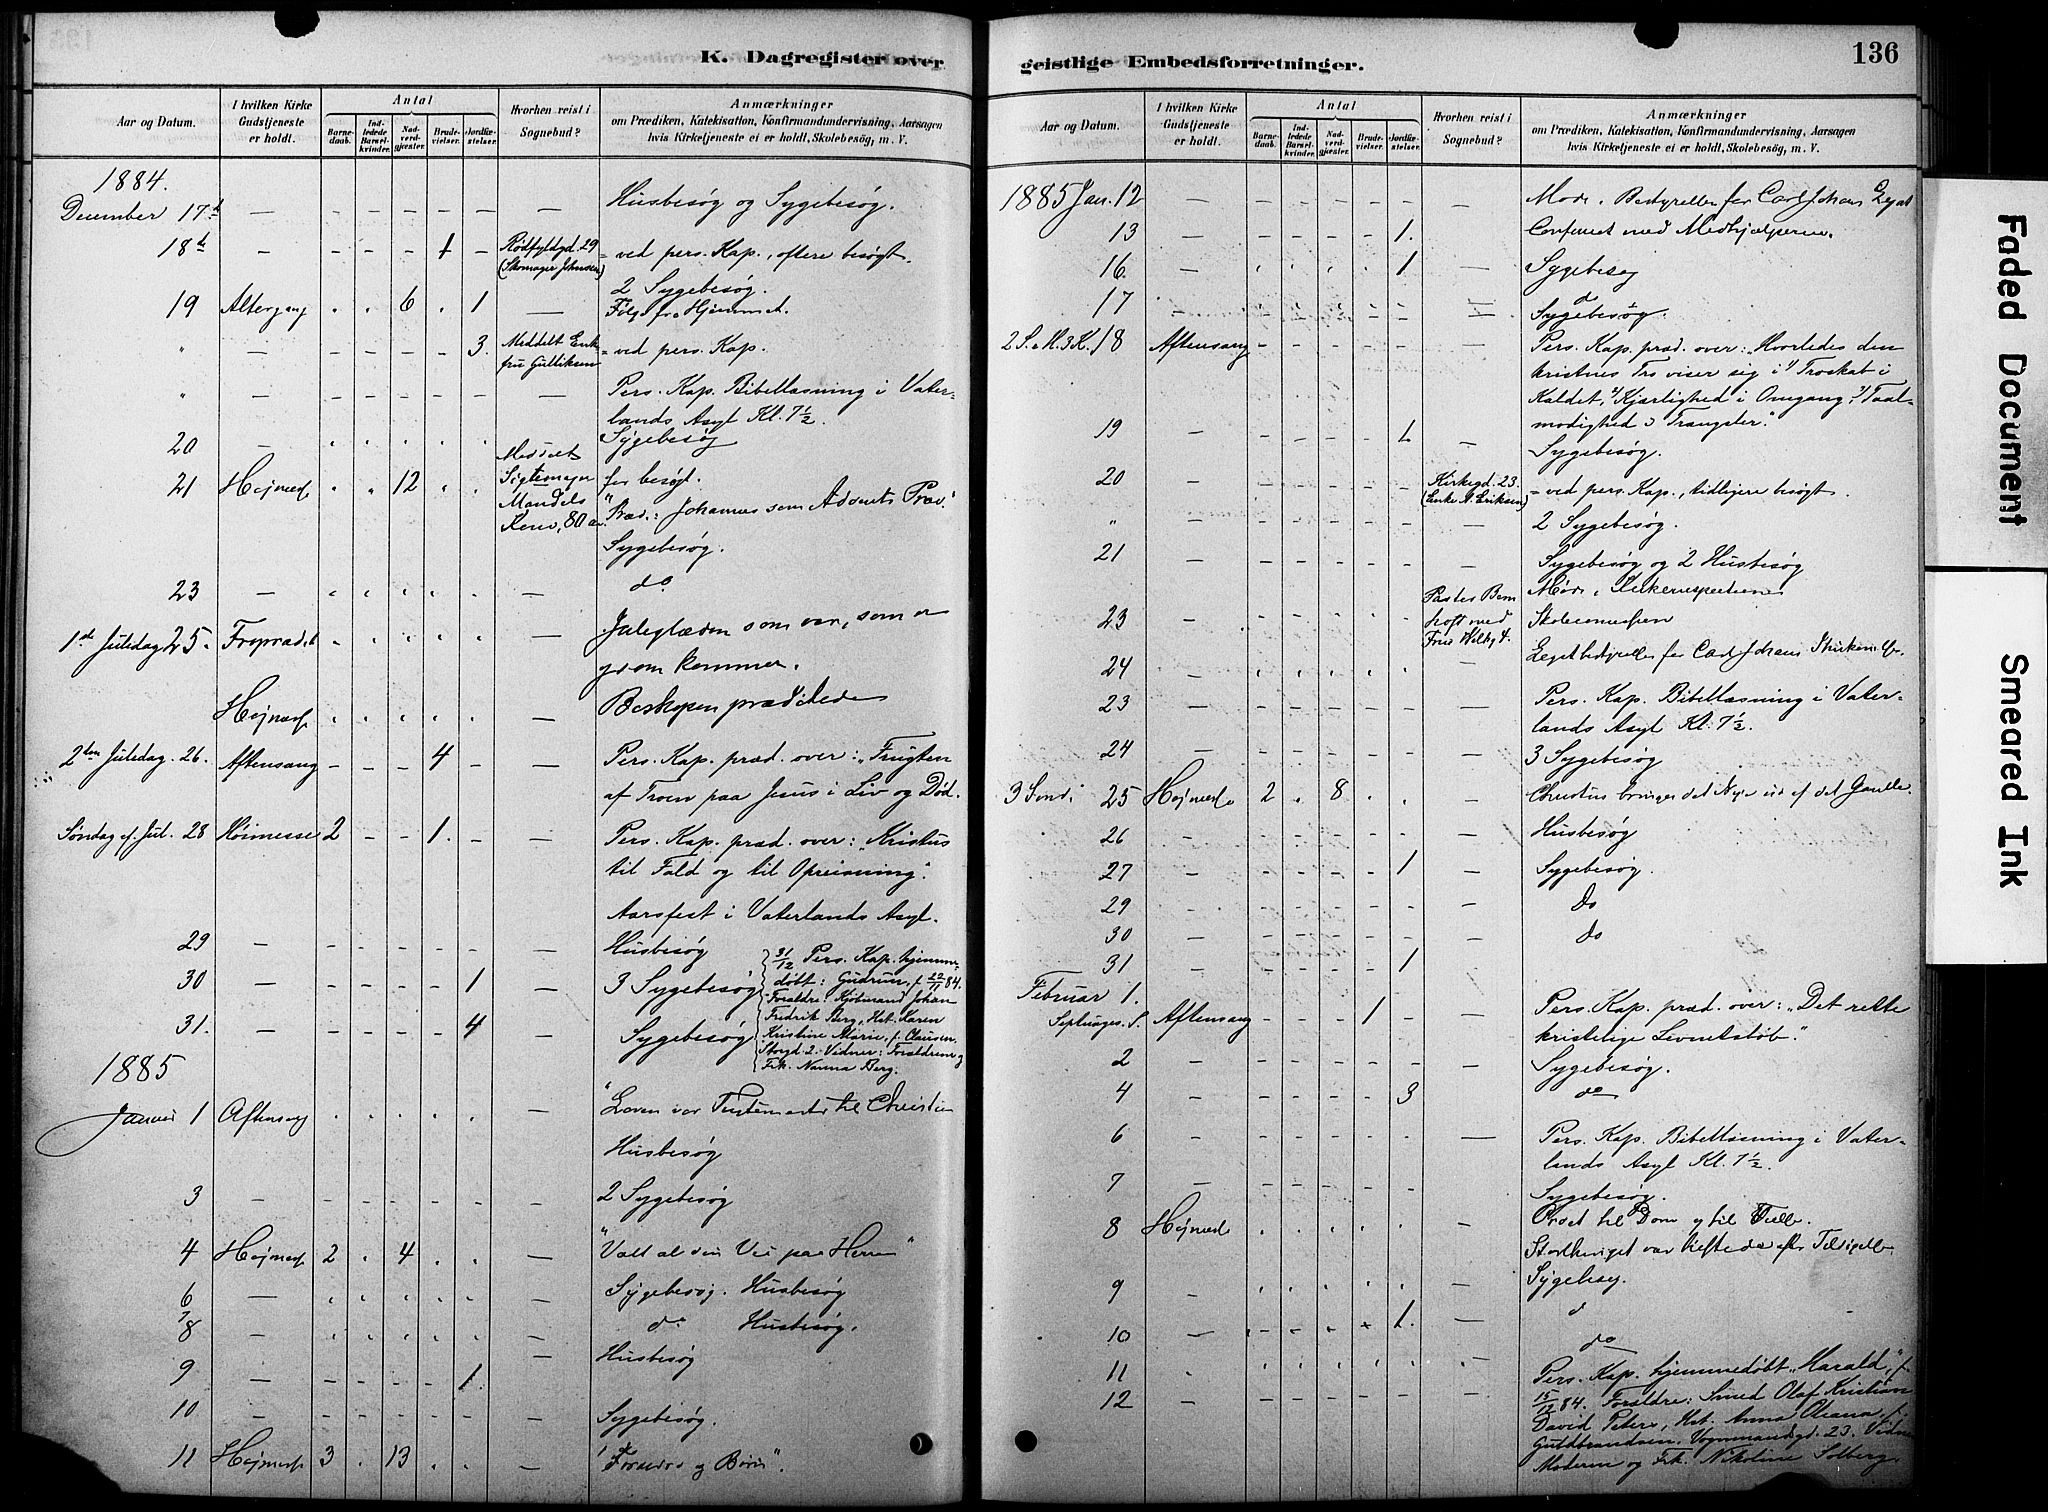 K. Dagregister over
Aar og Datum.
I hvilken Kirke Gudstjeneste er holdt.
Antal
Barnedaab.
Indledede Barselkvinder.
Nadverdgjæster.
Brudevielser.
Jordfæstelser.
Hvorhen reist i Sognebud?
Anmærkninger
om Prædiken, Katekisation, Konfirmandundervisning, Aarsagen
hvis Kirketjeneste ei er holdt, Skolebesög, m. V.
1884.
December 17de — Husbesøg og Sygebesøg.
18de — 1 — Rødfyldgd. 29 (Skomager Johnsen) = ved pers. Kap., oftere besøgt.
2 Sygebesøg.
19 Altergang 6 1 — Følge fra Hjemmet.
" — 3. Meddelt Enkefru Gulliksen = ved pers. Kap.
" — Pers. Kap. Bibellæsning i Vaterlands
Asyl Kl. 7½.
20 — Sygebesøg
21 Højmesse 12 Meddelt 80 før besøgt.
Præd.: Johannes som Advents
Sygebesøg.
23 — do
1ste Juledag 25. Juleglæden som var, som er
og som kommer.
Højmesse — Biskopen prædikede
2den Juledag. 26. Aftensang 4 — Pers. Kap. præd. over: „Frugten
af Troen paa Jesus i Liv og Død.
Søndag ef. Jul. 28 Høimesse 2 1. — Pers. Kap. præd. over: „Kristus
til Fald og til Opreisning".
Aarsfest i Vaterlands Asyl.
29 — Husbesøg
30 — 1 — 3 Sygebesøg
31. — 4 — Sygebesøg
31/12 Pers. Kap. hjemmedøbt:
Gudrun, f. 22/11 84.
Forældre: Kjøbmand Johan
Fredrik Berg, Het. Karen
Kristine Marie, f. Clausen.
Storgd. 2. Vidner: Forældrene og
Frk. Nanna Berg.
1885
Januar 1 Aftensang — "Loven vor Tugtemester til Christum
Husbesøg
3 — 2 Sygebesøg
4 Højmesse 2 4 — "Vælt al din Vei paa Herren"
6 — Sygebesøg. Husbesøg
7/8 — do. Husbesøg.
9 — 1. — Husbesøg
10 — Sygebesøg.
11 Højmesse 3 13 — "Forældre og Børn".
geistlige Embedsforretninger.
136
Aar og Datum.
I hvilken Kirke Gudstjeneste er holdt.
Antal
Barnedaab.
Indledede Barselkvinder.
Nadverdgjæster.
Brudevielser.
Jordfæstelser.
Hvorhen reist i Sognebud?
Anmærkninger
om Prædiken, Katekisation, Konfirmandundervisning, Aarsagen
hvis Kirketjeneste ei er holdt, Skolebesøg, m. V.
1885 Jan. 12 — Møde i Bestyrelsen for Carl Johans Legat
13 — 1. Conferent med Medhjælperne.
16. — 1 — Sygebesøg
17 — do
Sygebesøg.
2 S. e. H. 3 K. 18 Aftensang — Pers. Kap. præd. over: „Hvorledes den
kristnes Tro viser sig i 1) Troskab i
Kaldet, 2) Kjærlighed i Omgang, 3) Taalmodighed
i Trængsler."
19 — 1. — Sygebesøg.
20 — Kirkegd. 23. (Enke A. Eriksen) = ved pers. Kap., tidligere besøgt.
" — 2 Sygebesøg.
21 — Sygebesøg og 2 Husbesøg
Møde i
23 — Pastor med Frue
24
23 — Pers. Kap. Bibellæsning i Vaterlands
Asyl Kl. 7½.
24 — 3 Sygebesøg
3 Sønd. 25 Højmesse 2 8 — Christus bringer det Nye ud af det Gamle.
26 — Husbesøg
27 — 1 — Sygebesøg.
29 — Do
30 — do
31 — 1
Februar 1.
Septuages. S. Aftensang 1 — Pers. Kap. præd. over: „Det rette
kristelige Levnetsløb".
2 — Sygebesøg.
4 — 3 — do
6 — Pers. Kap. Bibellæsning i Vaterlands
Asyl Kl. 7½.
7 — Sygebesøg.
8 Højmesse — til Dom og til
9 — Sygebesøg.
10 — 1. — do
11 — do
12 Pers. Kap. hjemmedøbt „Harald", f.
15/12 84. Forældre: Smed Olaf Kristian
David Peters, Het. Anna Oleana, f.
Guldbrandsen, Vognmandsgd. 23. Vidner
Moderen og Frk. Nikoline Solberg.
Faded Document
Smeared Ink